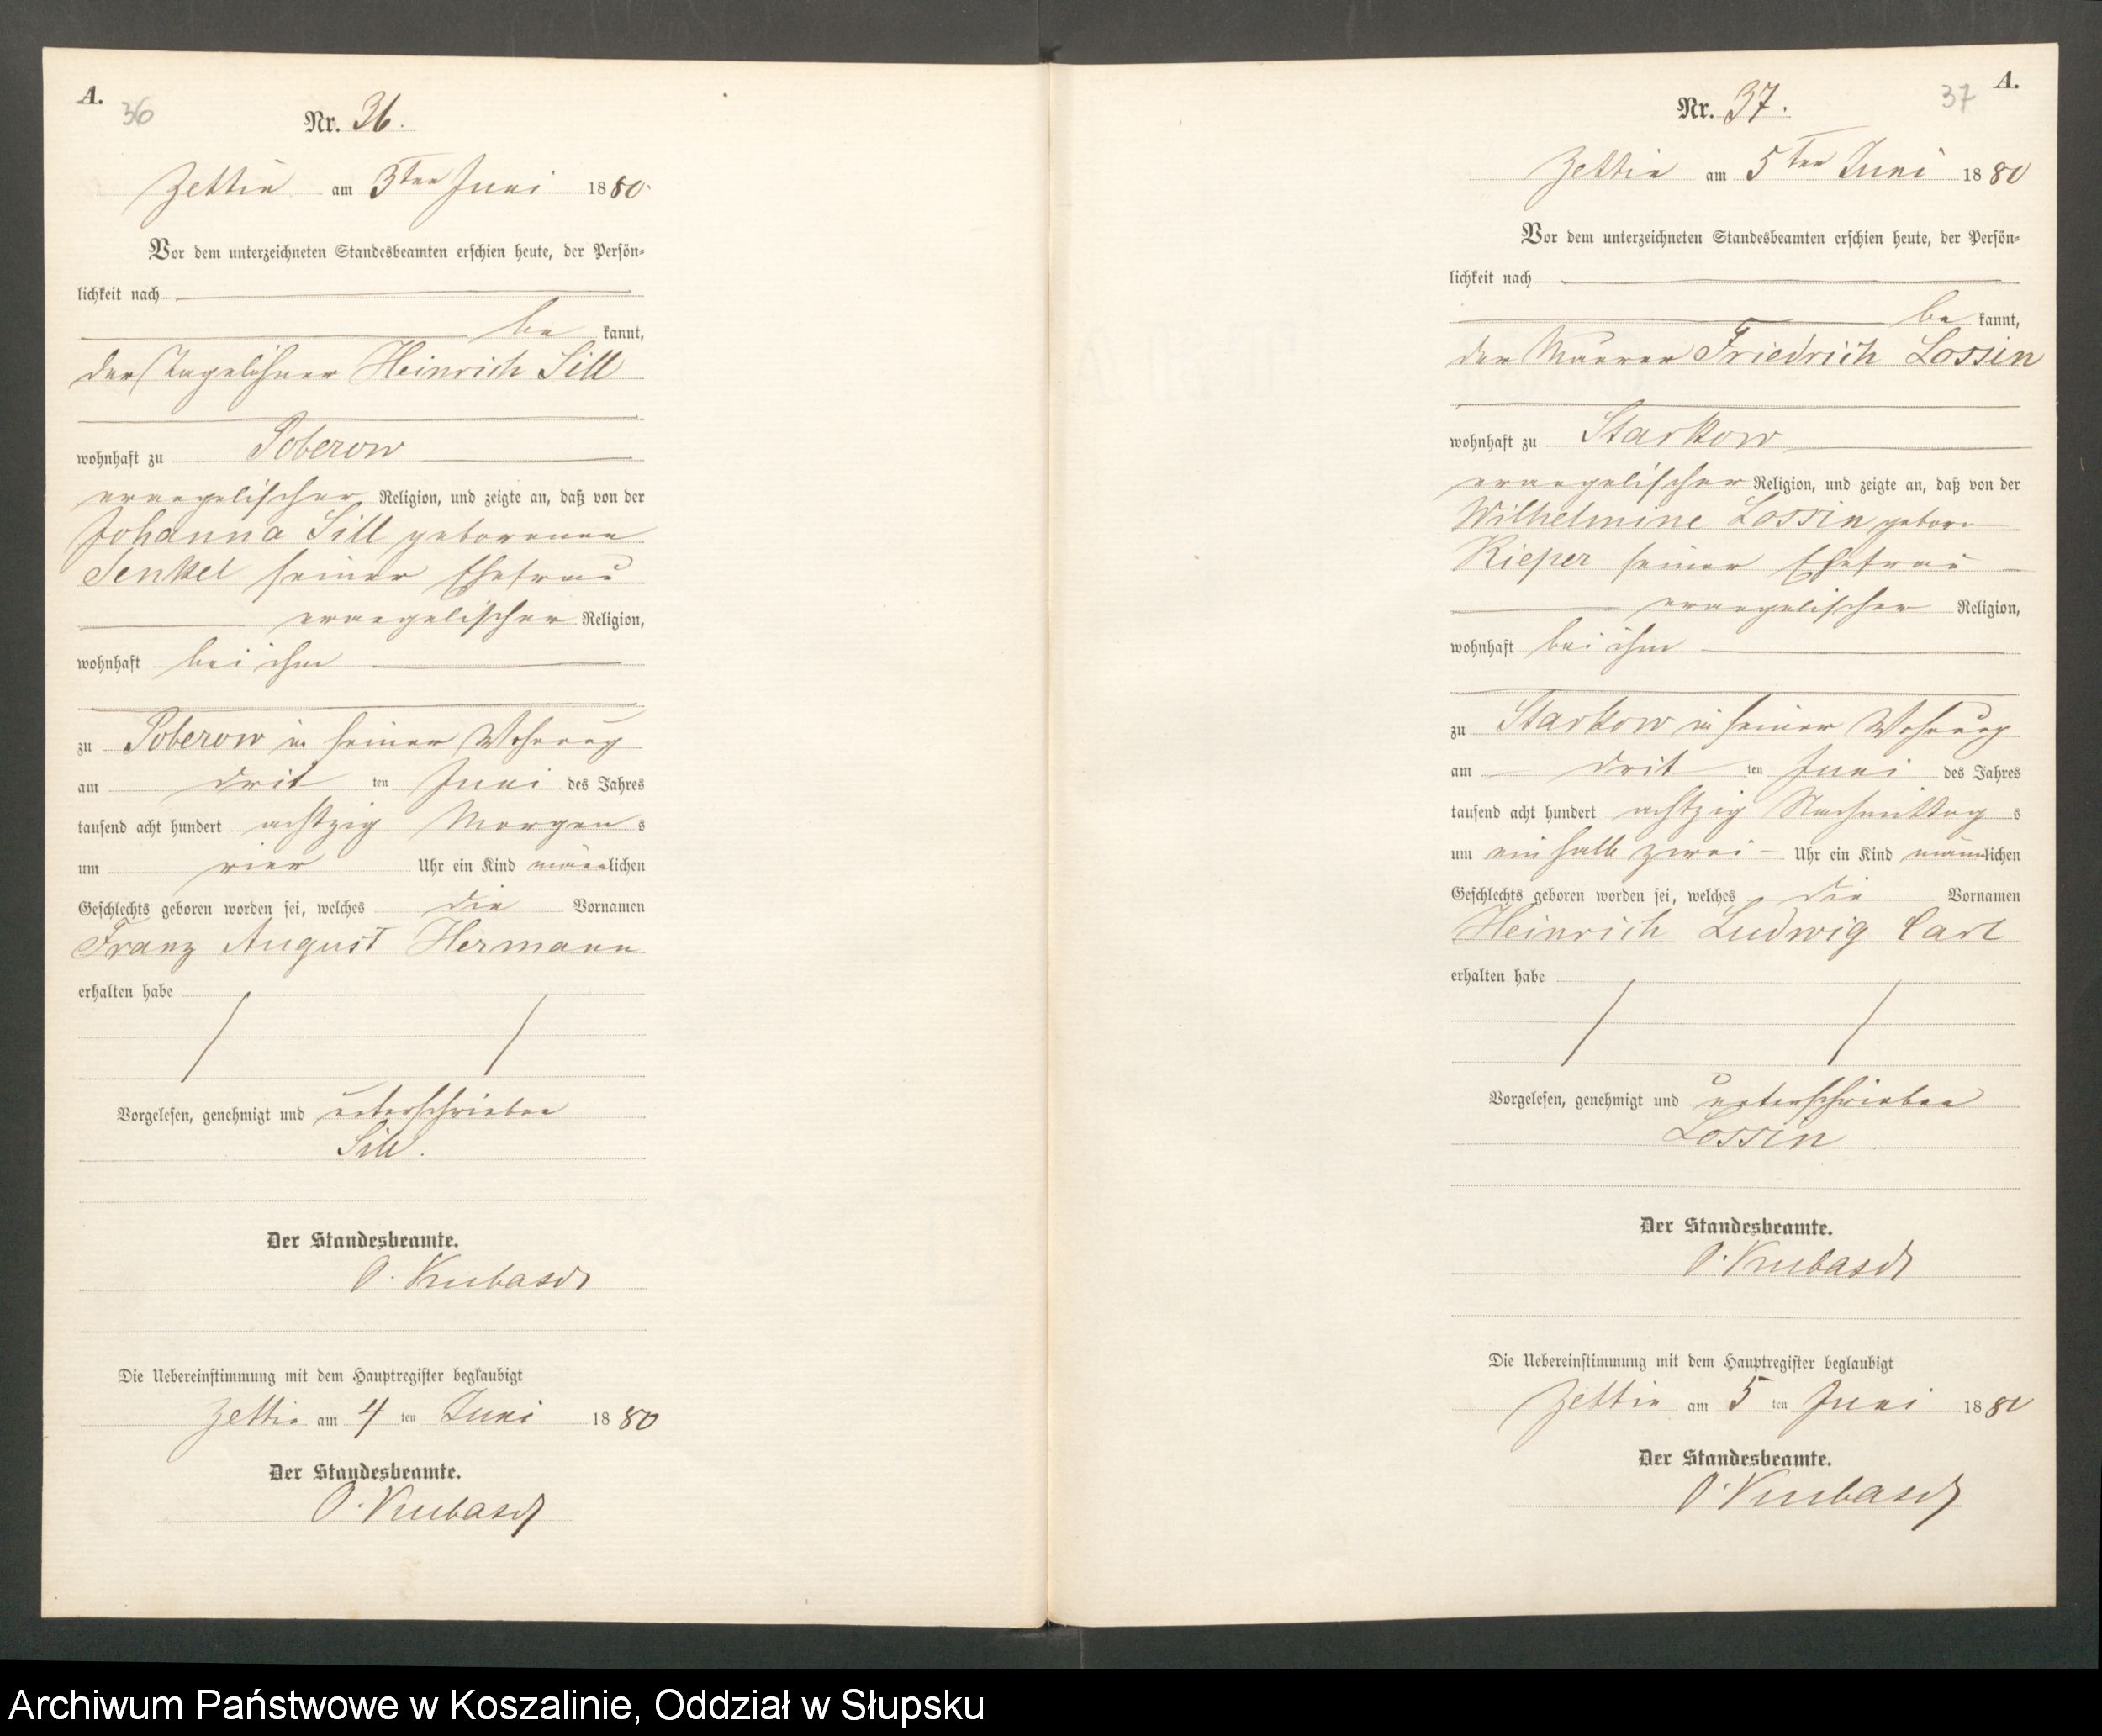 A.
36
Nr. 36.
Zettin am 3ten Juni 1880.
Vor dem unterzeichneten Standesbeamten erschien heute, der Persön-
lichkeit nach
be kannt,
der Tagelöhner Heinrich Sill
wohnhaft zu Poberow
evangelischer Religion, und zeigte an, daß von der
Johanna Sill geborenen
Senkel seiner Ehefrau
evangelischer Religion,
wohnhaft bei ihm
zu Poberow in seiner Wohnung
am drit ten Juni des Jahres
tausend acht hundert achtzig Morgen s
um vier Uhr ein Kind männlichen
Geschlechts geboren worden sei, welches die Vornamen
Franz August Hermann
erhalten habe
Vorgelesen, genehmigt und unterschrieben
Sill.
Der Standesbeamte.
O. Kubasch
Die Uebereinstimmung mit dem Hauptregister beglaubigt
Zettin am 4 ten Juni 1880
Der Standesbeamte.
O. Kubasch
A.
37
Nr. 37.
Zettin am 5ten Juni 1880
Vor dem unterzeichneten Standesbeamten erschien heute, der Persön-
lichkeit nach
be kannt,
der Maurer Friedrich Lossin
wohnhaft zu Starkow
evangelischer Religion, und zeigte an, daß von der
Wilhelmine Lossin geborn
Rieper seiner Ehefrau
evangelischer Religion,
wohnhaft bei ihm
zu Starkow in seiner Wohnung
am drit ten Juni des Jahres
tausend acht hundert achtzig Nachmittag s
um ein halb zwei Uhr ein Kind männlichen
Geschlechts geboren worden sei, welches die Vornamen
Heinrich Ludwig Carl
erhalten habe
Vorgelesen, genehmigt und unterschrieben
Lossin
Der Standesbeamte.
O. Kubasch
Die Uebereinstimmung mit dem Hauptregister beglaubigt
Zettin am 5 ten Juni 1880
Der Standesbeamte.
O. Kubasch
Archiwum Państwowe w Koszalinie, Oddział w Słupsku